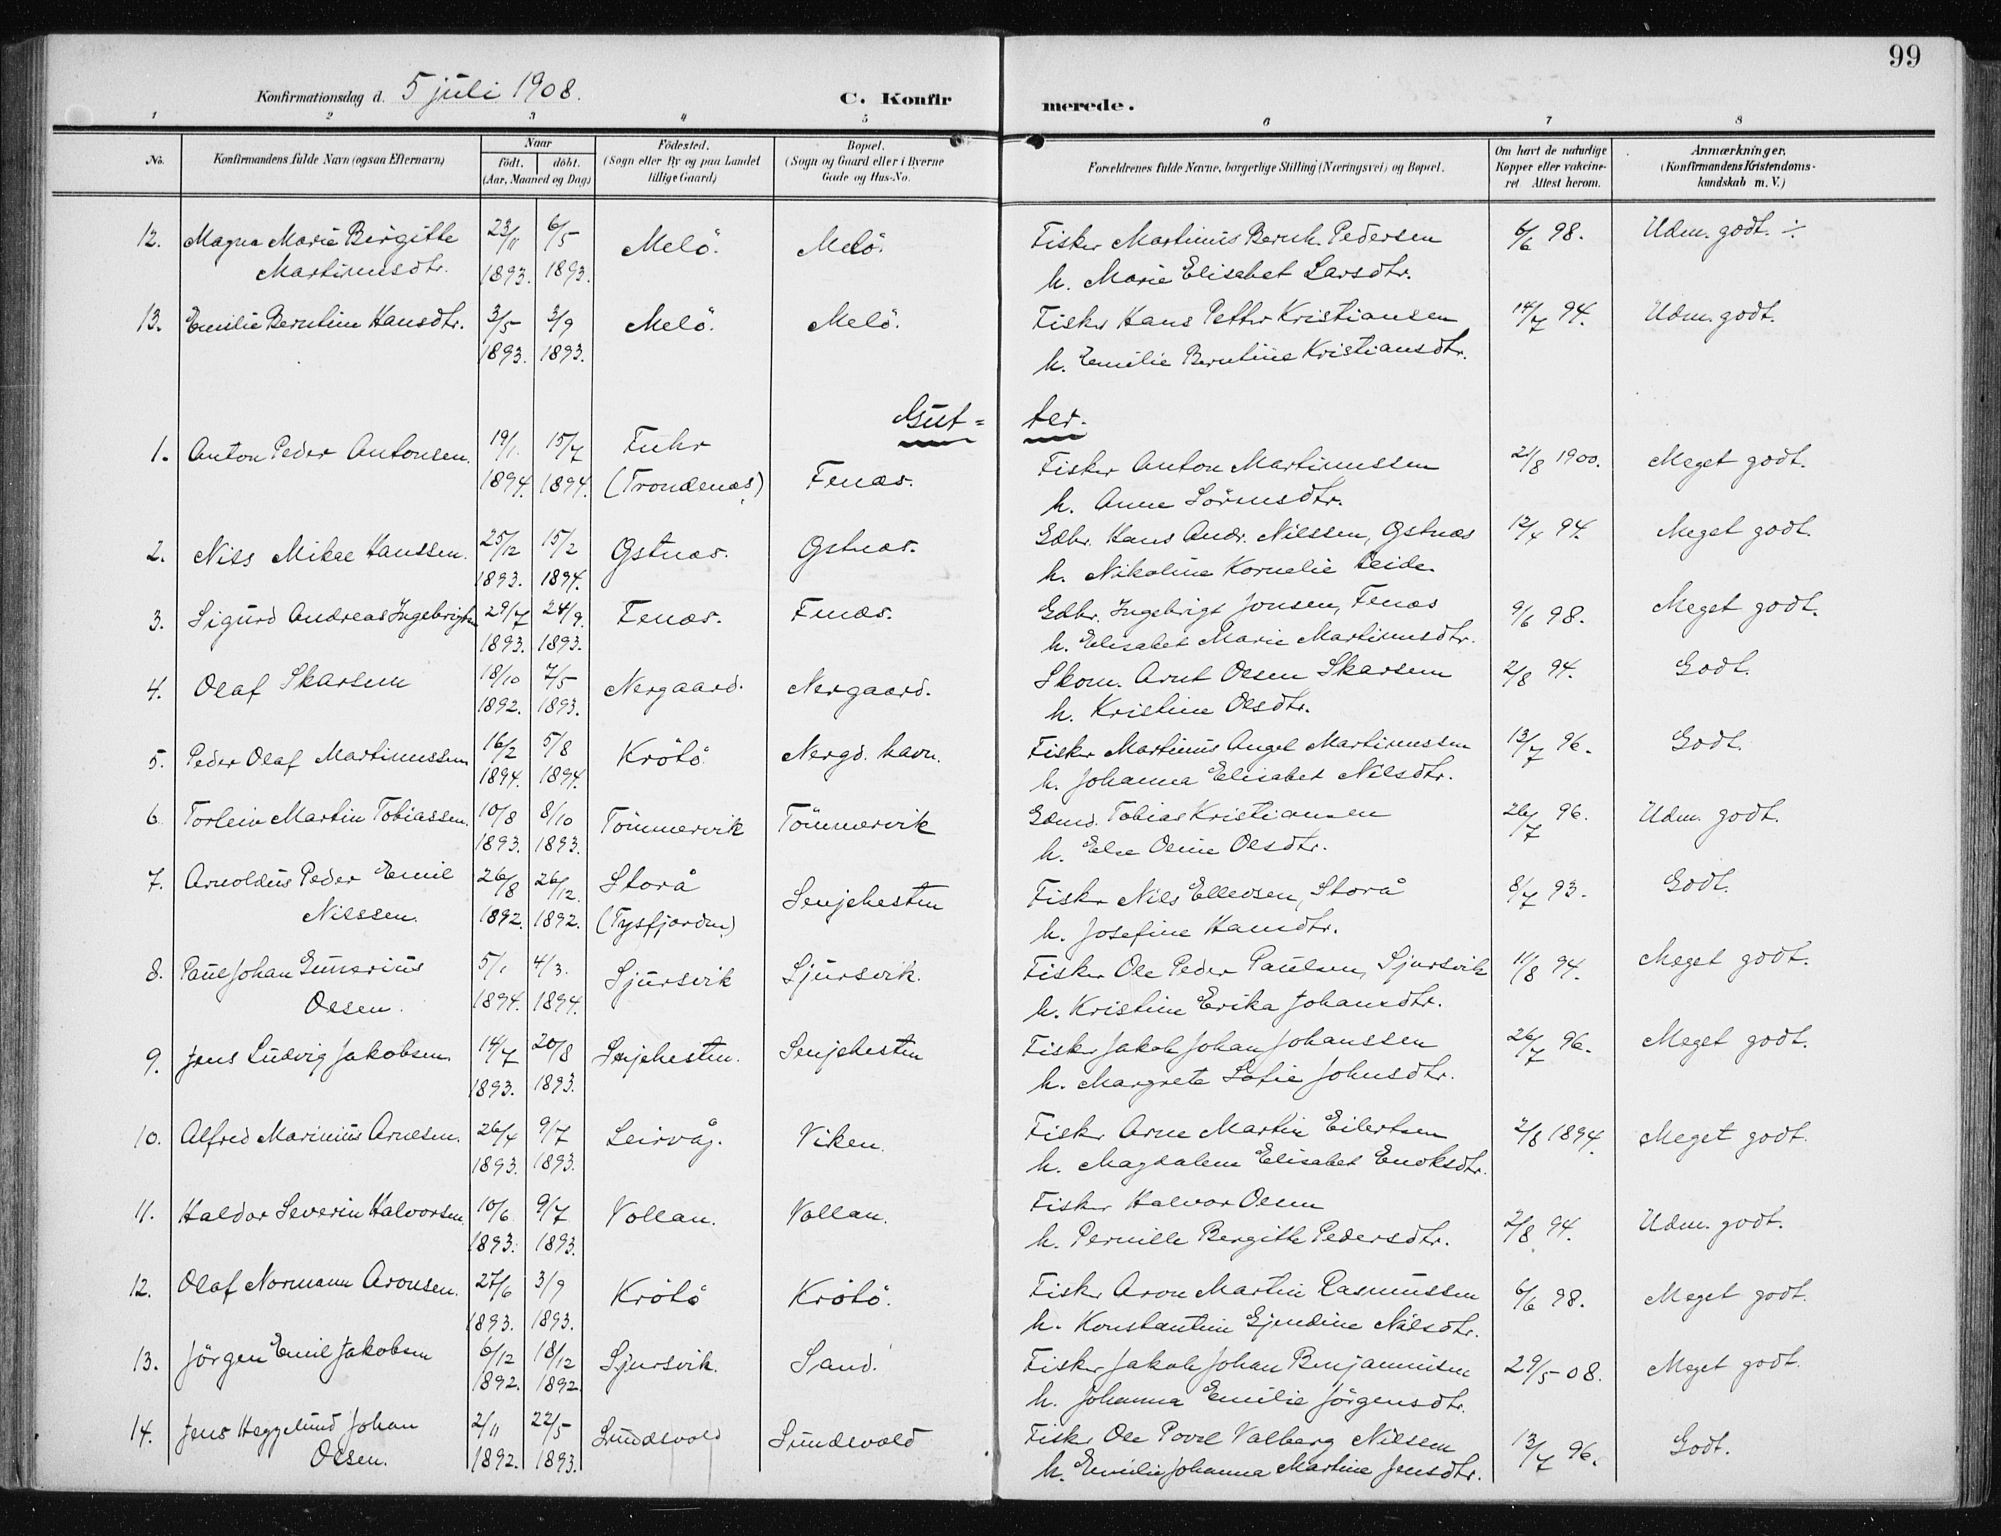 99
Konfirmationsdag d. 5 juli 1908. C. Konfir merede.
1 2 3 4 5 6 7 8
No. Konfirmandens fulde Navn (ogsaa Efternavn) Naar født. døbt. (Aar, Maaned og Dag) Fødested. (Sogn eller By og paa Landet tillige Gaard) Bopæl. (Sogn og Gaard eller i Byerne Gade og Hus-No. Forældrenes fulde Navne, borgerlige Stilling (Næringsvei) og Bopæl. Om havt de naturlige Kopper eller vakcineret Attest herom. Anmærkninger, (Konfirmandens Kristendomskundskab m. V.)
12. Magna Marie Birgitte 23/11 6/5 Melö. Melö. Fisker Martinus Bernh. Pedersen 6/6 98. Udm. godt. ÷
Martinusdtr. 1893. 1893. h. Marie Elisabet Larsdtr.
13. Emilie Berntine Hansdtr. 3/5 3/9 Melö. Melö. Fisker Hans Petter Kristiansen 14/7 94. Udm. godt.
1893. 1893. h. Emilie Berntine Kristiansdtr.
Gut= ter.
1. Anton Peder Antonsen. 19/1 15/7 Fuhr Fisker Anton Martinussen 21/8 1900. Meget godt.
1894. 1894. (Trondenæs) Fenæs. h. Anne Sörensdtr.
2. Nils Mikal Hanssen. 25/12 15/2 Gstnæs. Gstnæs. Gdbr. Hans Andr. Nilssen, Gstnæs 12/4 94. Meget godt.
1893. 1894. h. Nikoline Kornelie
3. Sigurd Andreas Ingebrigtsen 29/7 24/9 Fenæs. Fenæs. Gdbr. Ingebrigt Jonsen, Fenæs 9/6 98. Meget godt.
1893. 1893. h. Elisabet Marie Martinusdtr.
4. Olaf Skarsem 18/10 7/5 Nergaard. Nergaard. Skom. Arnt Olsen Skarsem 2/8 94. Godt.
1892. 1893. h. Kristine Olsdtr.
5. Peder Olaf Martinussen 16/2 5/8 Krötö Nergd. havn. Fisker Martinus Angel Martinussen 13/7 96. Godt.
1894. 1894. h. Johanna Elisabet Nilsdtr.
6. Torlein Martin Tobiassen. 10/8 8/10 Tömmervik Tömmervik Gdmd. Tobias Kristiansen 26/7 96. Udm. godt.
1893. 1893. h. Else Oline Olsdtr.
7. Arnoldus Peder Emil 26/8 26/12 Storå Senjehesten Fisker Nils Ellevsen, Storå 8/7 93. Godt.
Nilssen. 1892. 1892. (Tysfjorden) h. Josefine Hansdtr.
8. Paul Johan Gunerius 5/1 4/3. Sjursvik Sjursvik. Fisker Ole Peder Paulsen, Sjursvik 11/8 94. Meget godt.
Olsen. 1894. 1894. h. Kristine Erika Johansdtr.
9. Jens Ludvig Jakobsen. 14/7 20/8 Senjehesten. Senjehesten Fisker Jakob Johan Johanssen 26/7 96. Meget godt.
1893. 1893. h. Margrete Sofie Johnsdtr.
10. Alfred Marinius Arnesen. 26/4 9/7 Leirvåg. Viken. Fisker Arne Martin Eilertsen 2/8 1894. Meget godt.
1893. 1893. h. Magdalena Elisabet Enoksdtr.
11. Haldor Severin Halvorsen. 10/6 9/7 Vollan. Vollan. Fisker Halvor Olsen 2/8 94. Udm. godt.
1893. 1893. h. Pernille Bergitte Pedersdtr.
12. Olaf Normann Aronsen. 27/6 3/9 Krötö Krötö. Fisker Aron Martin Rasmussen 6/6 98. Meget godt.
1893. 1893. h. Konstantine Gjendine Nilsdtr.
13. Jörgen Emil Jakobsen 6/12 18/12 Sjursvik. Sand. Fisker Jakob Johan Benjaminsen 29/5-08. Meget godt.
1892. 1892. h. Johanna Emilie Jörgensdtr.
14. Jens Heggelund Johan 2/11 22/5 Sundsvold Sundsvold Fisker Ole Povel Valberg Nilssen 13/7 96. Godt.
Olsen. 1892. 1893. h. Emilie Johanna Martine Jensdtr.